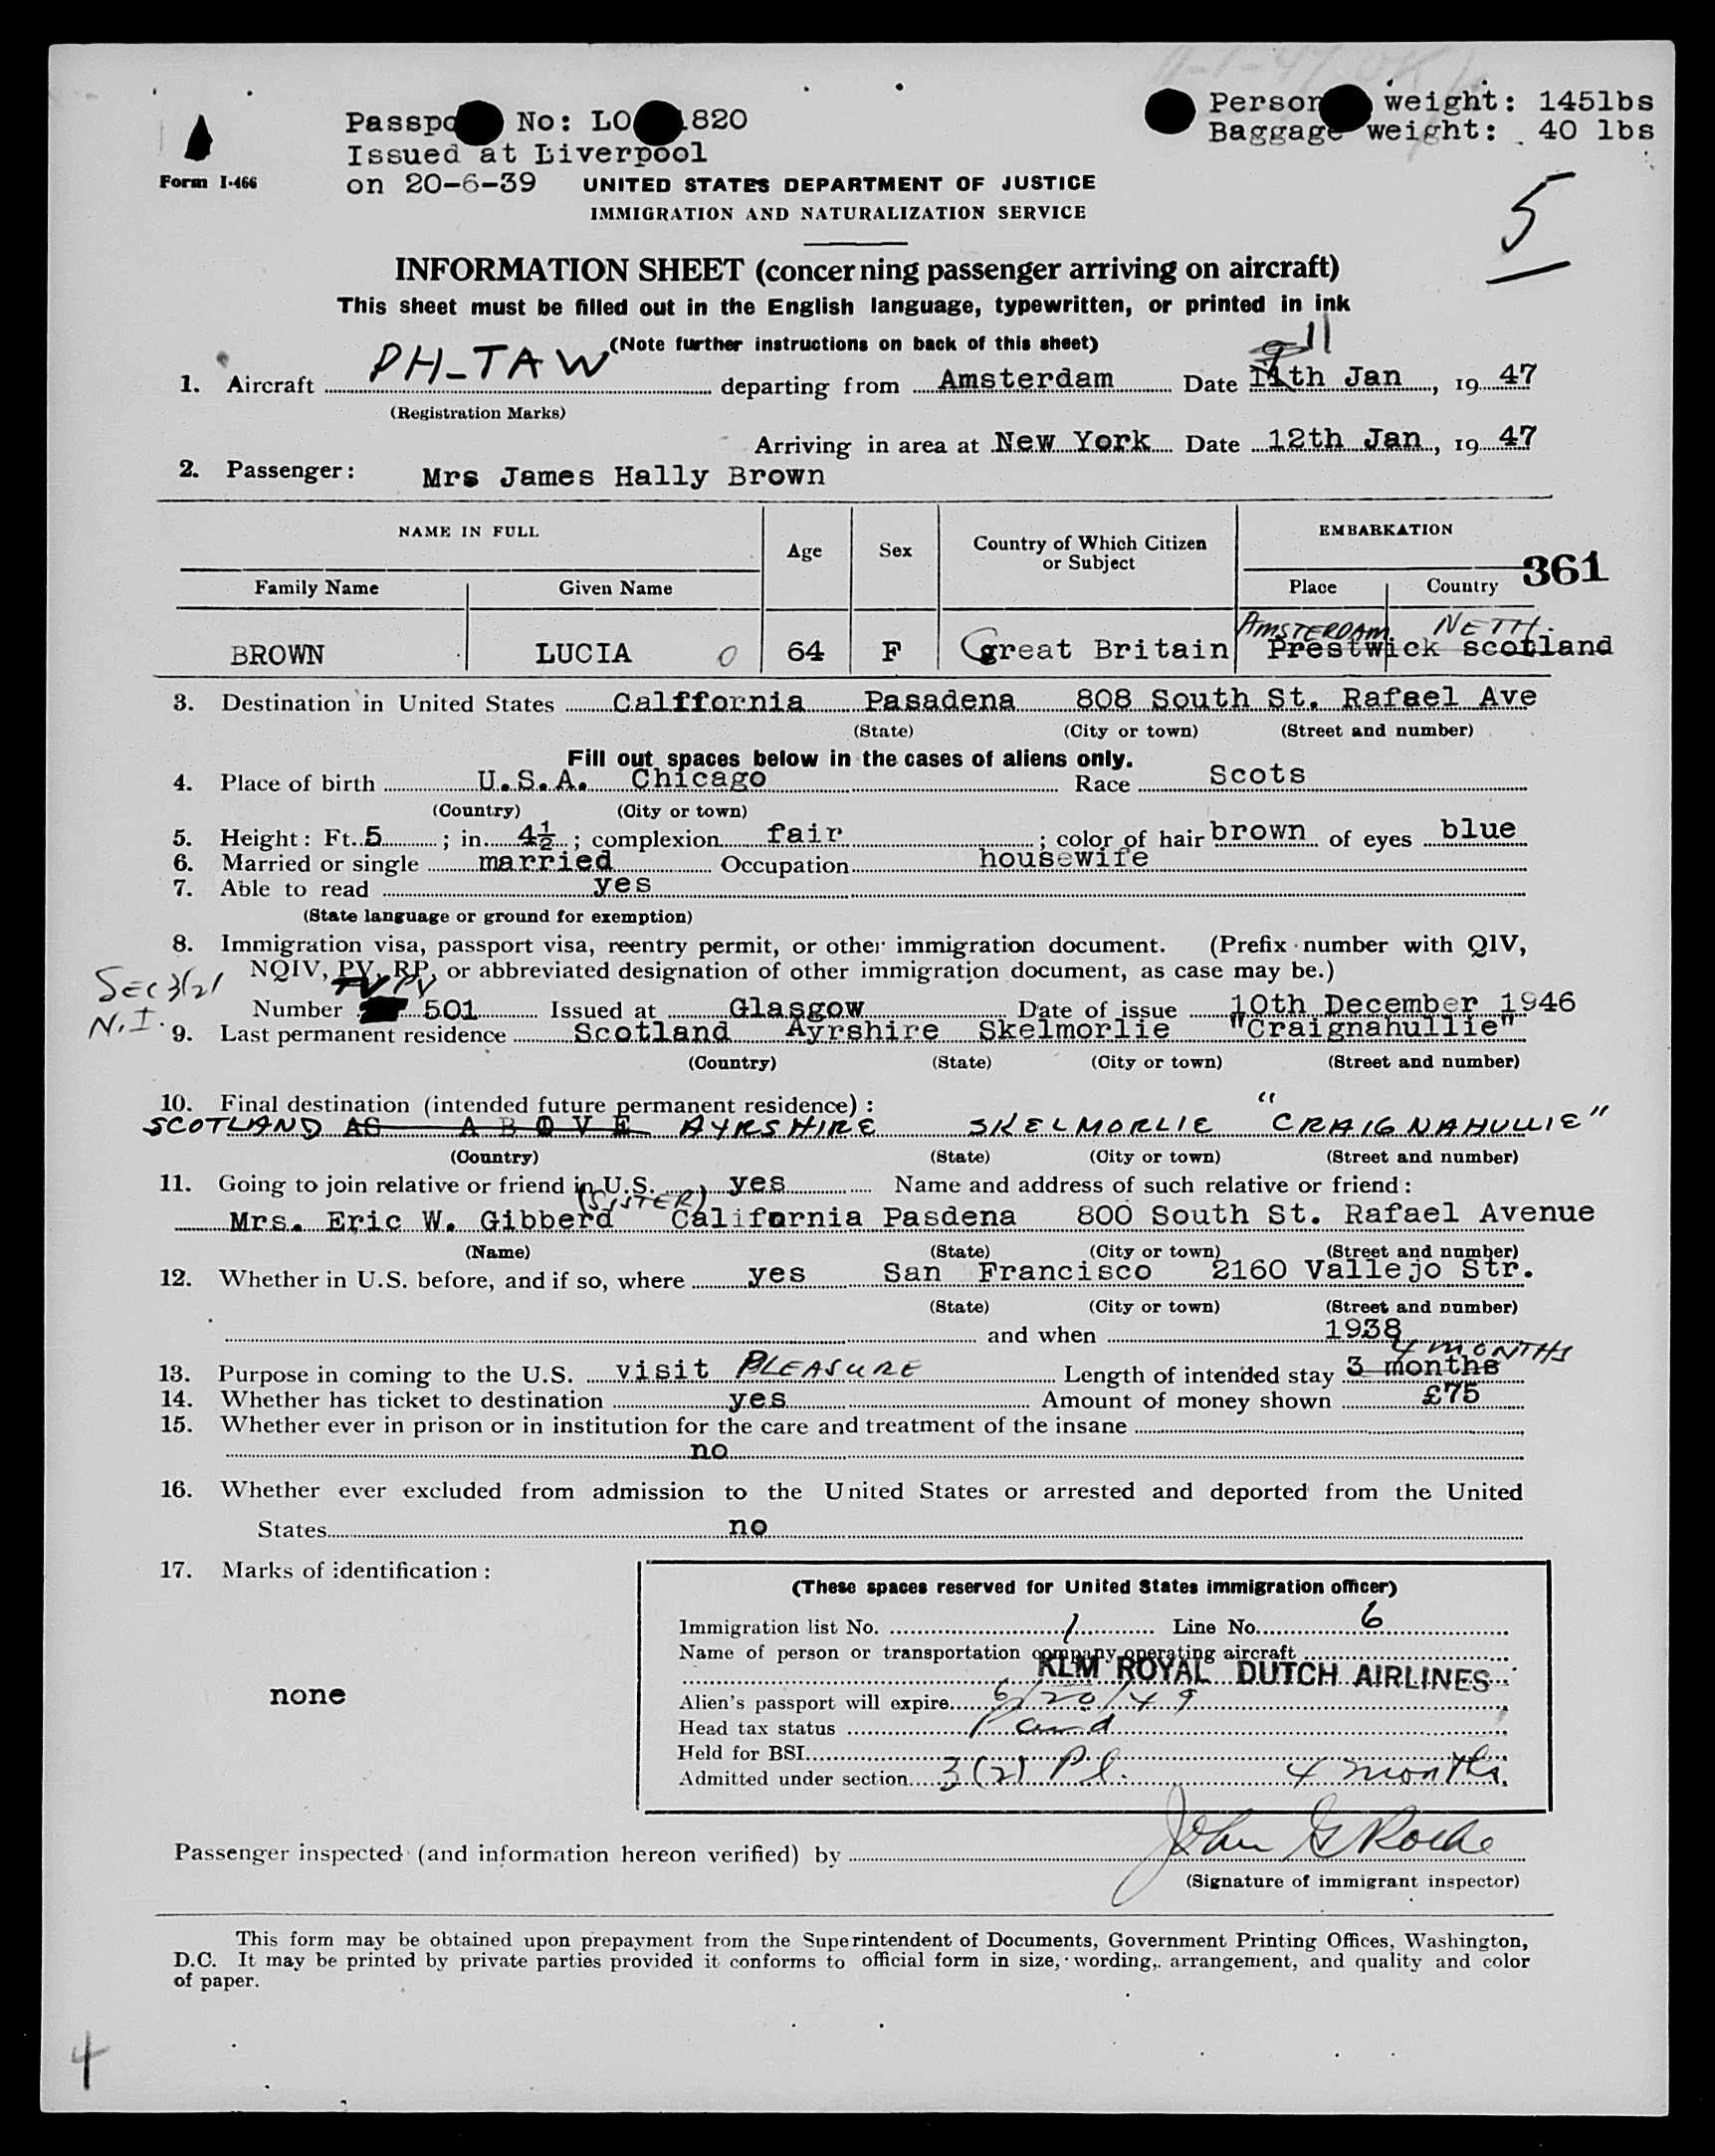 Passpo No: LO 1820
Issued at Liverpool
on 20-6-39
Person weight: 145lbs
Baggage weight: 40 lbs
Form I-466
UNITED STATES DEPARTMENT OF JUSTICE
IMMIGRATION AND NATURALIZATION SERVICE
5
INFORMATION SHEET (concerning passenger arriving on aircraft)
This sheet must be filled out in the English language, typewritten, or printed in ink
(Note further instructions on back of this sheet)
11
1. Aircraft PH-TAW departing from Amsterdam Date th Jan, 19 47
(Registration Marks)
Arriving in area at New York Date 12th Jan, 19 47
2. Passenger: Mrs James Hally Brown
NAME IN FULL Age Sex Country of Which Citizen or Subject EMBARKATION
Family Name Given Name Place Country 361
AMSTERDAM NETH.
BROWN LUCIA 0 64 F Great Britain Prestwick scotland
3. Destination in United States Calffornia Pasadena 808 South St. Rafael Ave
(State) (City or town) (Street and number)
Fill out spaces below in the cases of aliens only.
4. Place of birth U.S.A. Chicago Race Scots
(Country) (City or town)
5. Height: Ft. 5 ; in. 4½ ; complexion fair ; color of hair brown of eyes blue
6. Married or single married Occupation housewife
7. Able to read yes
(State language or ground for exemption)
8. Immigration visa, passport visa, reentry permit, or other immigration document. (Prefix number with QIV,
NQIV, PV, RP, or abbreviated designation of other immigration document, as case may be.)
SEC 3(2)
N.I.
PV
Number 501 Issued at Glasgow Date of issue 10th December 1946
9. Last permanent residence Scotland Ayrshire Skelmorlie "Craignahullie"
(Country) (State) (City or town) (Street and number)
10. Final destination (intended future permanent residence):
SCOTLAND AS ABOVE AYRSHIRE SKELMORLIE "CRAIGNAHULLIE"
(Country) (State) (City or town) (Street and number)
11. Going to join relative or friend in U.S. yes Name and address of such relative or friend:
(SISTER)
Mrs. Eric W. Gibberd California Pasdena 800 South St. Rafael Avenue
(Name) (State) (City or town) (Street and number)
12. Whether in U.S. before, and if so, where yes San Francisco 2160 Vallejo Str.
(State) (City or town) (Street and number)
and when 1938
4 MONTHS
13. Purpose in coming to the U.S. visit PLEASURE Length of intended stay 3 months
14. Whether has ticket to destination yes Amount of money shown £75
15. Whether ever in prison or in institution for the care and treatment of the insane
no
16. Whether ever excluded from admission to the United States or arrested and deported from the United
States no
17. Marks of identification:
none
(These spaces reserved for United States immigration officer)
Immigration list No. 1 Line No. 6
Name of person or transportation company operating aircraft
KLM ROYAL DUTCH AIRLINES
Alien's passport will expire 6/20/49
Head tax status
Held for BSI
Admitted under section 3(2) Pl. 4 months
Passenger inspected (and information hereon verified) by John G Roche
(Signature of immigrant inspector)
This form may be obtained upon prepayment from the Superintendent of Documents, Government Printing Offices, Washington,
D.C. It may be printed by private parties provided it conforms to official form in size, wording, arrangement, and quality and color
of paper.
4